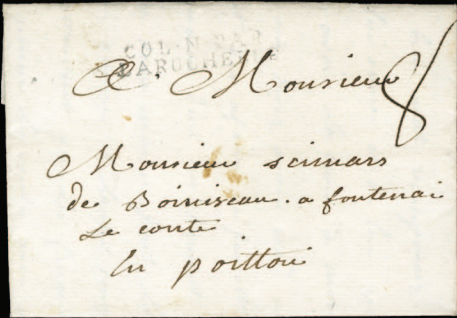 COL. N. PAR
LAROCHELLE
A Monsieur 8
Monsieur scimars
de Boiniseau. a fontenai
Le conte
En poittou